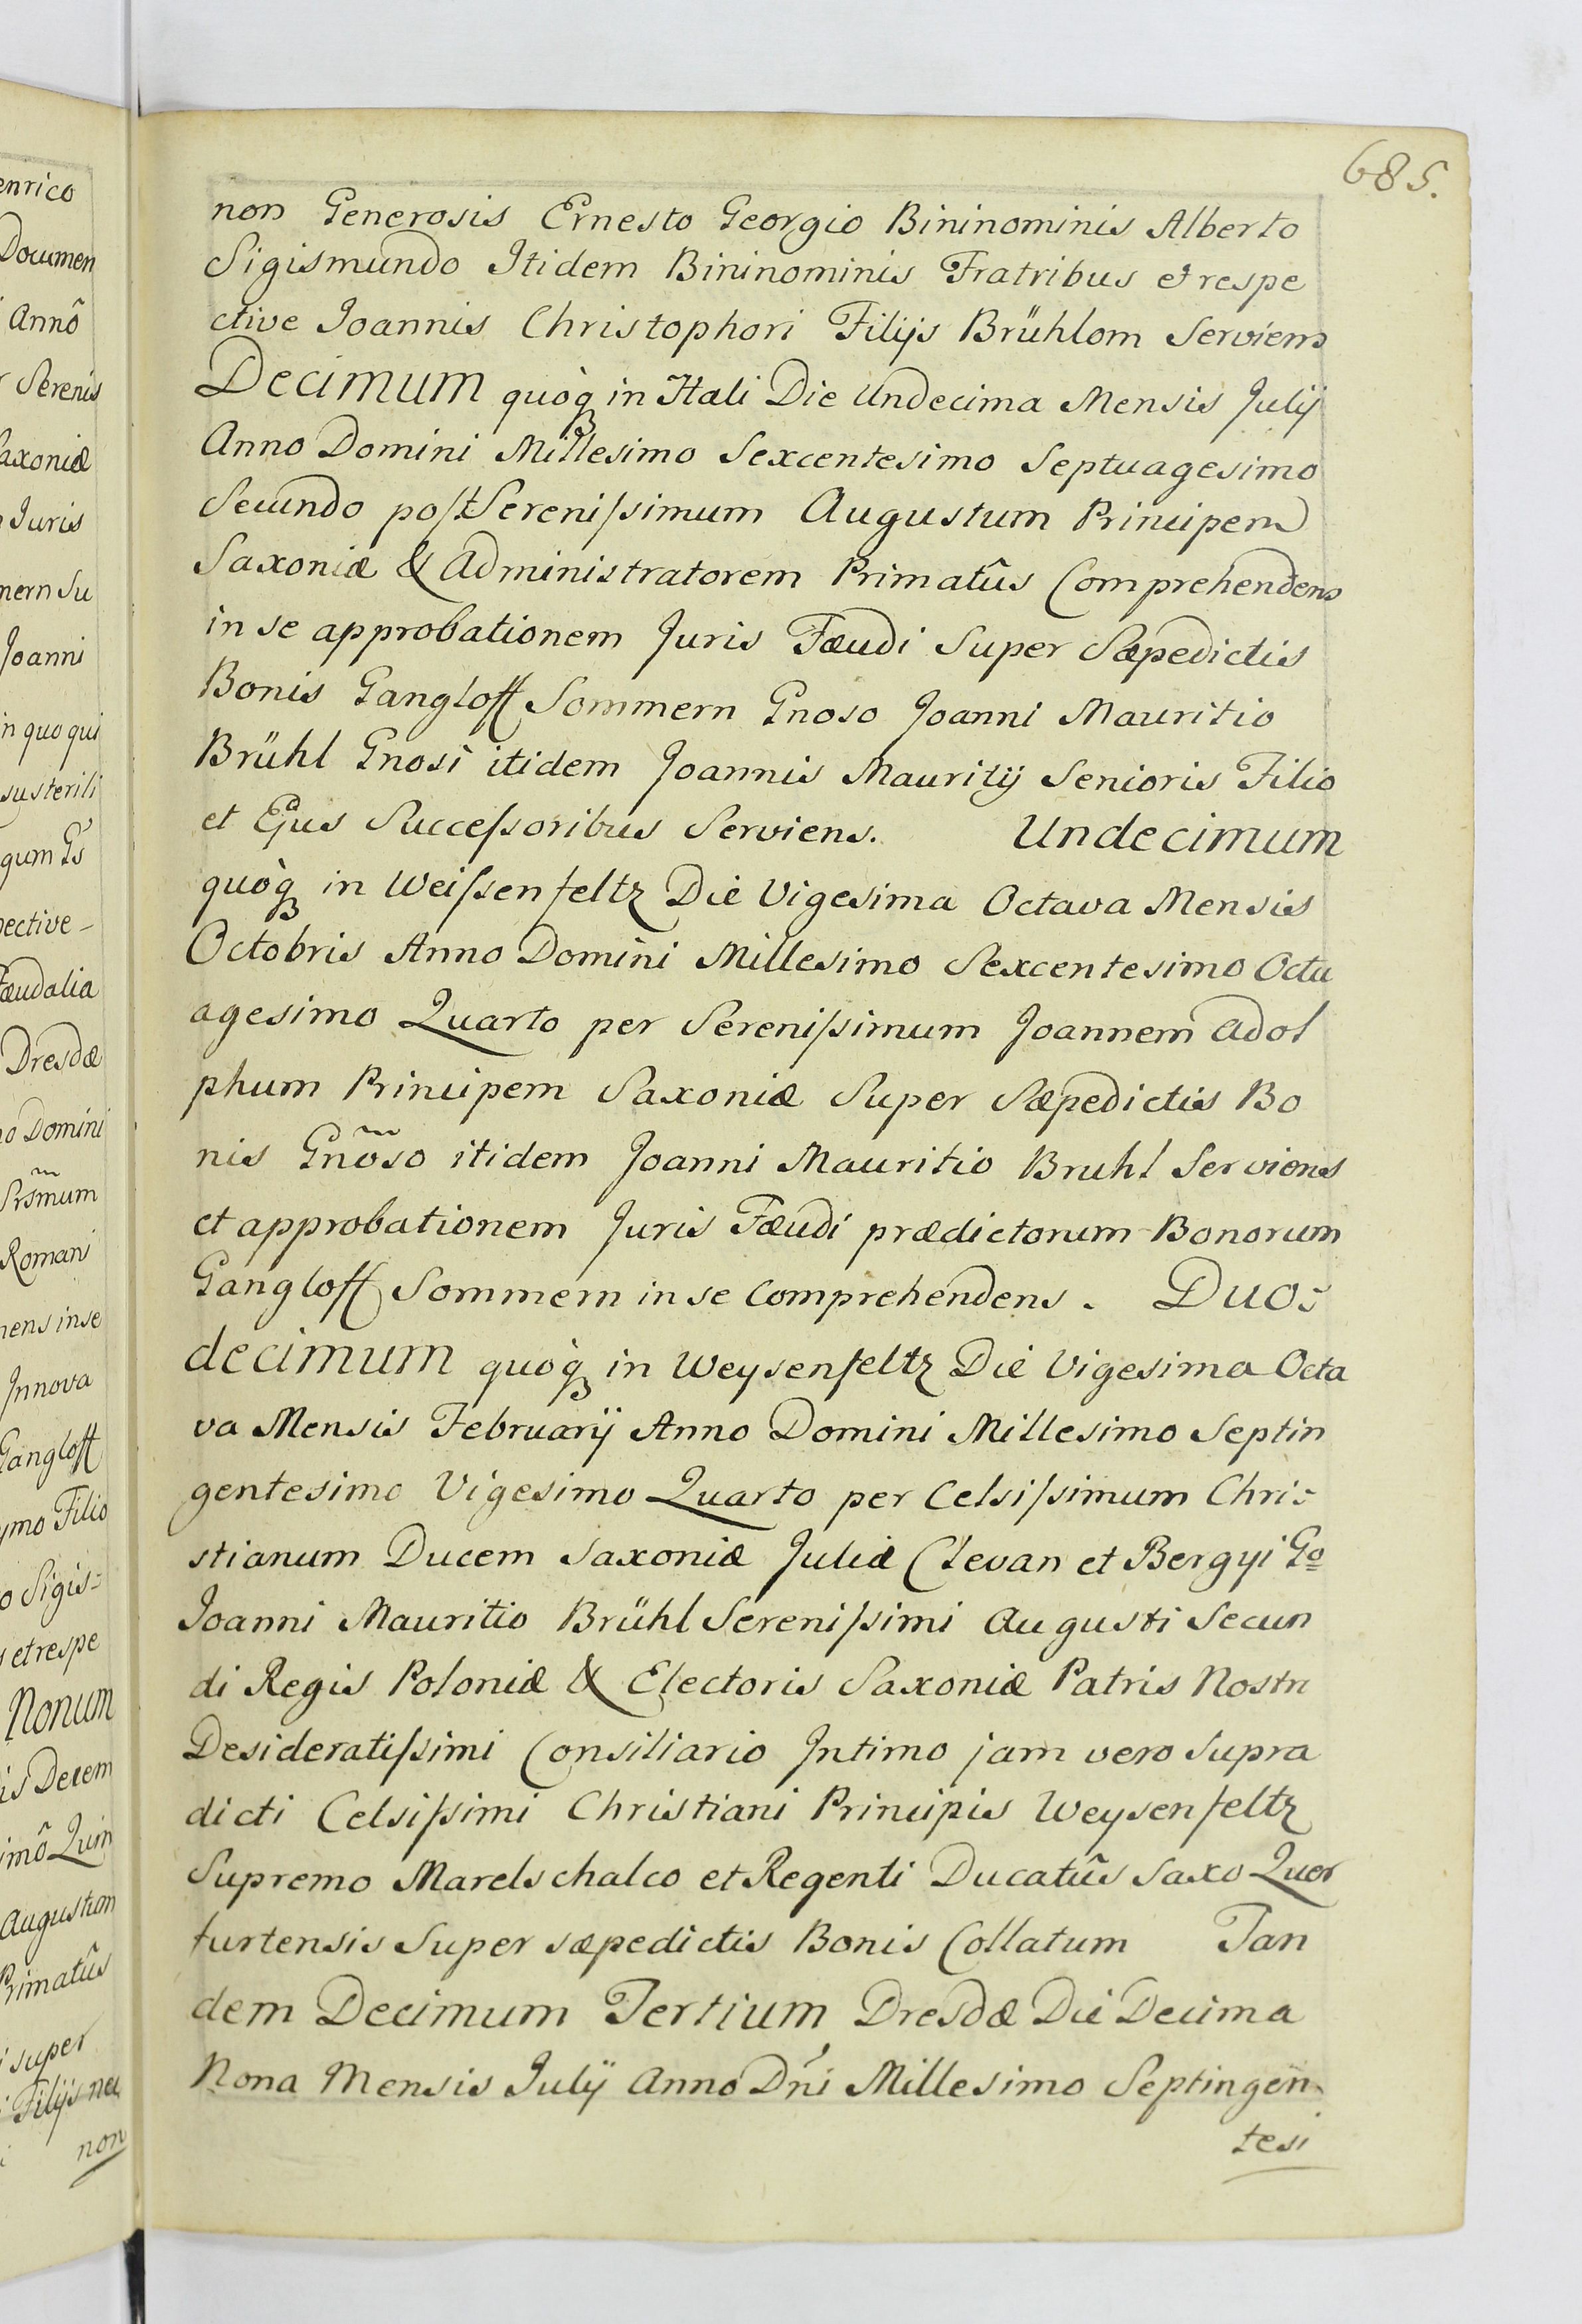 685.
non Generosis Ernesto Georgio Bininominis Alberto
Sigismundo Itidem Bininominis Fratribus et respe
ctive Joannis Christophori Filijs Brühlom Serviens
Decimum quòq in Itali Die Undecima Mensis Julij
Anno Domini Millesimo Sexcentesimo Septuagesimo
Secundo post Serenissimum Augustum Principem
Saxoniæ & Administratorem Primatûs Comprehendens
in se approbationem Juris Fæudi Super Sæpedictis
Bonis Gangloff Sommern Gnoso Joanni Mauritio
Brühl Gnosi itidem Joannis Mauritij Senioris Filio
et Ejus Successoribus Serviens. Undecimum
quòq in Weissenfeltz Die Vigesima Octava Mensis
Octobris Anno Domini Millesimo Sexcentesimo Octu
agesimo Quarto per Serenissimum Joannem Adol
phum Principem Saxoniæ Super Sæpedictis Bo
nis Gnõso itidem Joanni Mauritio Bruhl Serviens
et approbationem Juris Fæudi prædictorum Bonorum
Gangloff Sommern in se Comprehendens. Duo=
decimum quòq in Weysenfeltz Die Vigesima Octa
va Mensis Februarij Anno Domini Millesimo Septin
gentesimo Vigesimo Quarto per Celsissimum Chri=
stianum Ducem Saxoniæ Juliæ Clevan et Bergyi Go
Joanni Mauritio Brühl Serenissimi Augusti Secun
di Regis Poloniæ & Electoris Saxoniæ Patris Nostri
Desideratissimi Consiliario Intimo jam vero Supra
dicti Celsissimi Christiani Principis Weysenfeltz
Supremo Marelschalco et Regenti Ducatûs Saxo Quer
furtensis Super sæpedictis Bonis Collatum Tan
dem Decimum Tertium Dresdæ Die Decima
Nona Mensis Julij Anno Dni Millesimo Septingen
tesi
enrico
Documen
Annô
Serenis
Saxoniæ
Juris
mern Su
Joanni
in quo qui
su sterili
gum Gs
pective
Fæudalia
Dresdæ
no Domini
Srsmum
Romani
mens in se
Innova
Gangloff
ymo Filio
o Sigis=
et respe
Nonum
is Decem
imô Quin
Augustum
Primatûs
super
Filijs nec
non